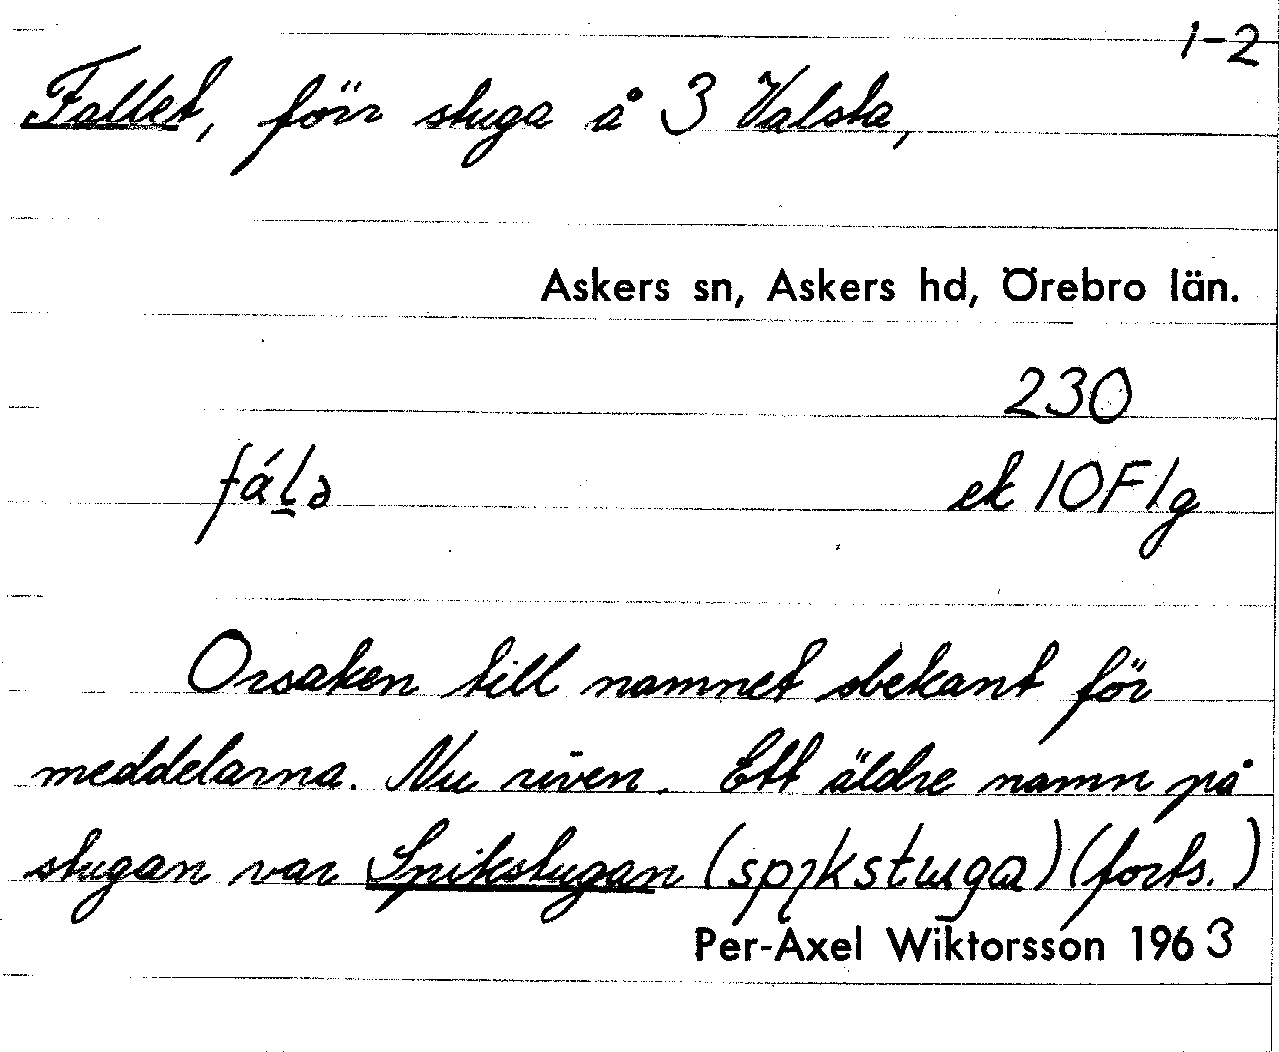 1-2
Fallet, förr stuga å 3 Valsta,
Askers sn, Askers hd, Örebro län.
230
fál̲ə ek 10F1g
Orsaken till namnet obekant för
meddelarna. Nu riven. Ett äldre namn på
stugan var Spikstugan (spıkstɯga) (forts.)
Per-Axel Wiktorsson 1963